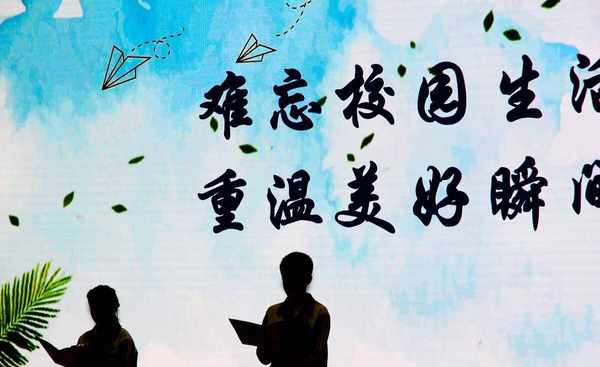 难忘校园生活
重温美好瞬间